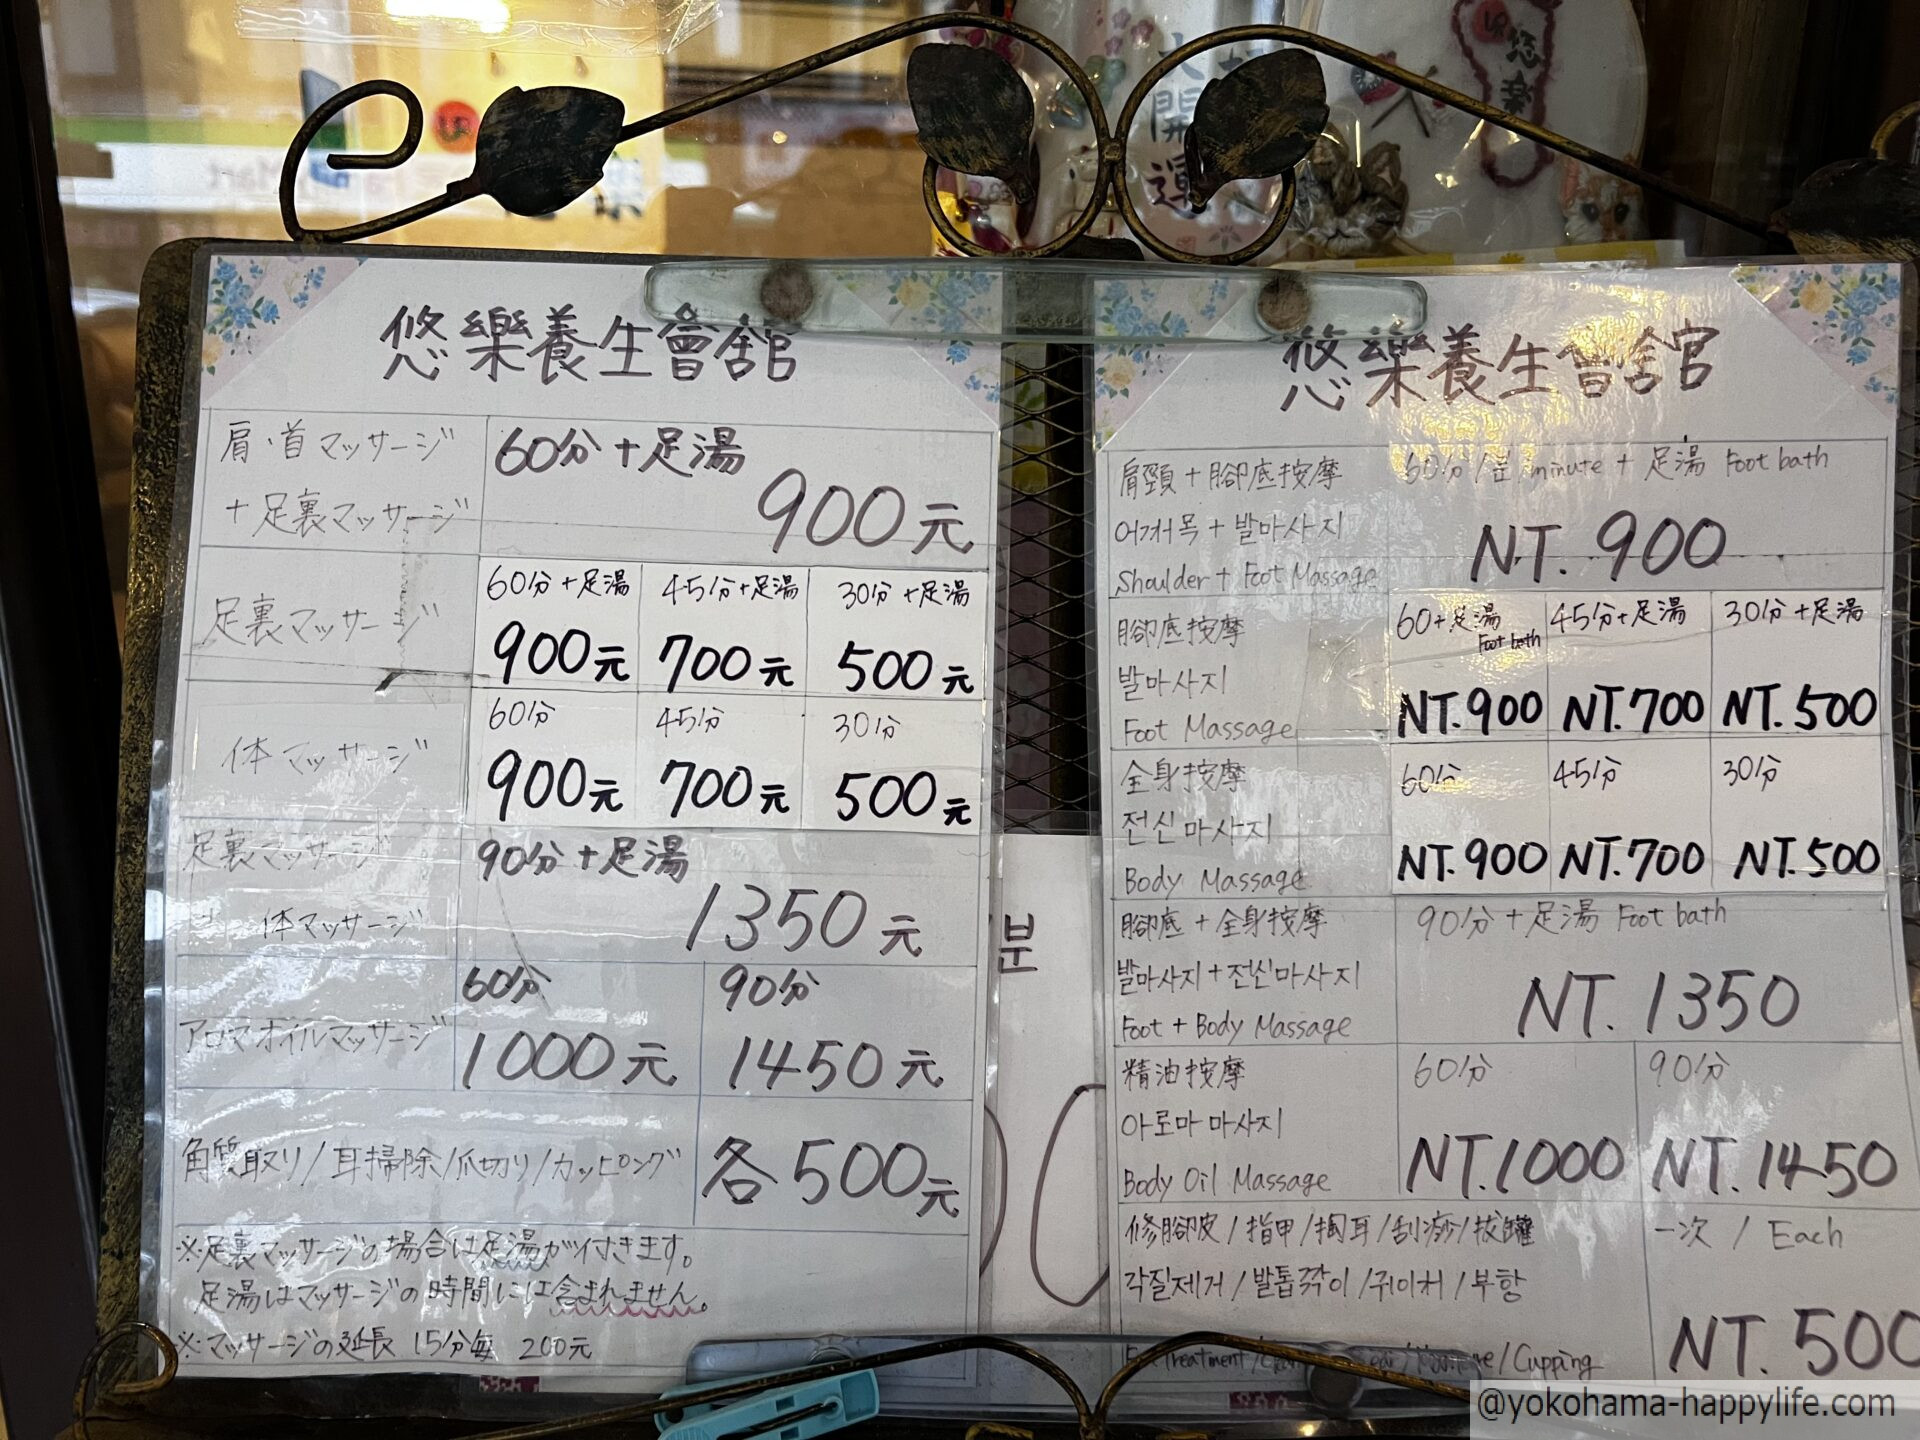 大開運
悠樂
悠樂養生會舘
肩・首マッサージ
+足裏マッサージ
60分+足湯
900元
足裏マッサージ
60分+足湯 45分+足湯 30分+足湯
900元 700元 500元
体マッサージ
60分 45分 30分
900元 700元 500元
足裏マッサージ
体マッサージ
90分+足湯
1350元
アロマオイルマッサージ
60分 90分
1000元 1450元
角質取り/耳掃除/爪切り/カッピング
各500元
※足裏マッサージの場合は足湯が付きます。
足湯はマッサージの時間には含まれません。
※マッサージの延長 15分毎 200元
분
悠樂養生會舘
肩頸+腳底按摩
어깨목+발마사지
Shoulder + Foot Massage
60分/분/minute + 足湯 Foot bath
NT. 900
腳底按摩
발마사지
Foot Massage
60+足湯 Foot bath 45分+足湯 30分+足湯
NT.900 NT.700 NT.500
全身按摩
전신마사지
Body Massage
60分 45分 30分
NT.900 NT.700 NT.500
腳底+全身按摩
발마사지+전신마사지
Foot + Body Massage
90分+足湯 Foot bath
NT. 1350
精油按摩
아로마 마사지
Body Oil Massage
60分 90分
NT.1000 NT.1450
修腳皮/指甲/掏耳/刮痧/拔罐
각질제거/발톱깍이/귀이저/부항
Treatment / Cupping
一次/Each
NT. 500
@yokohama-happylife.com